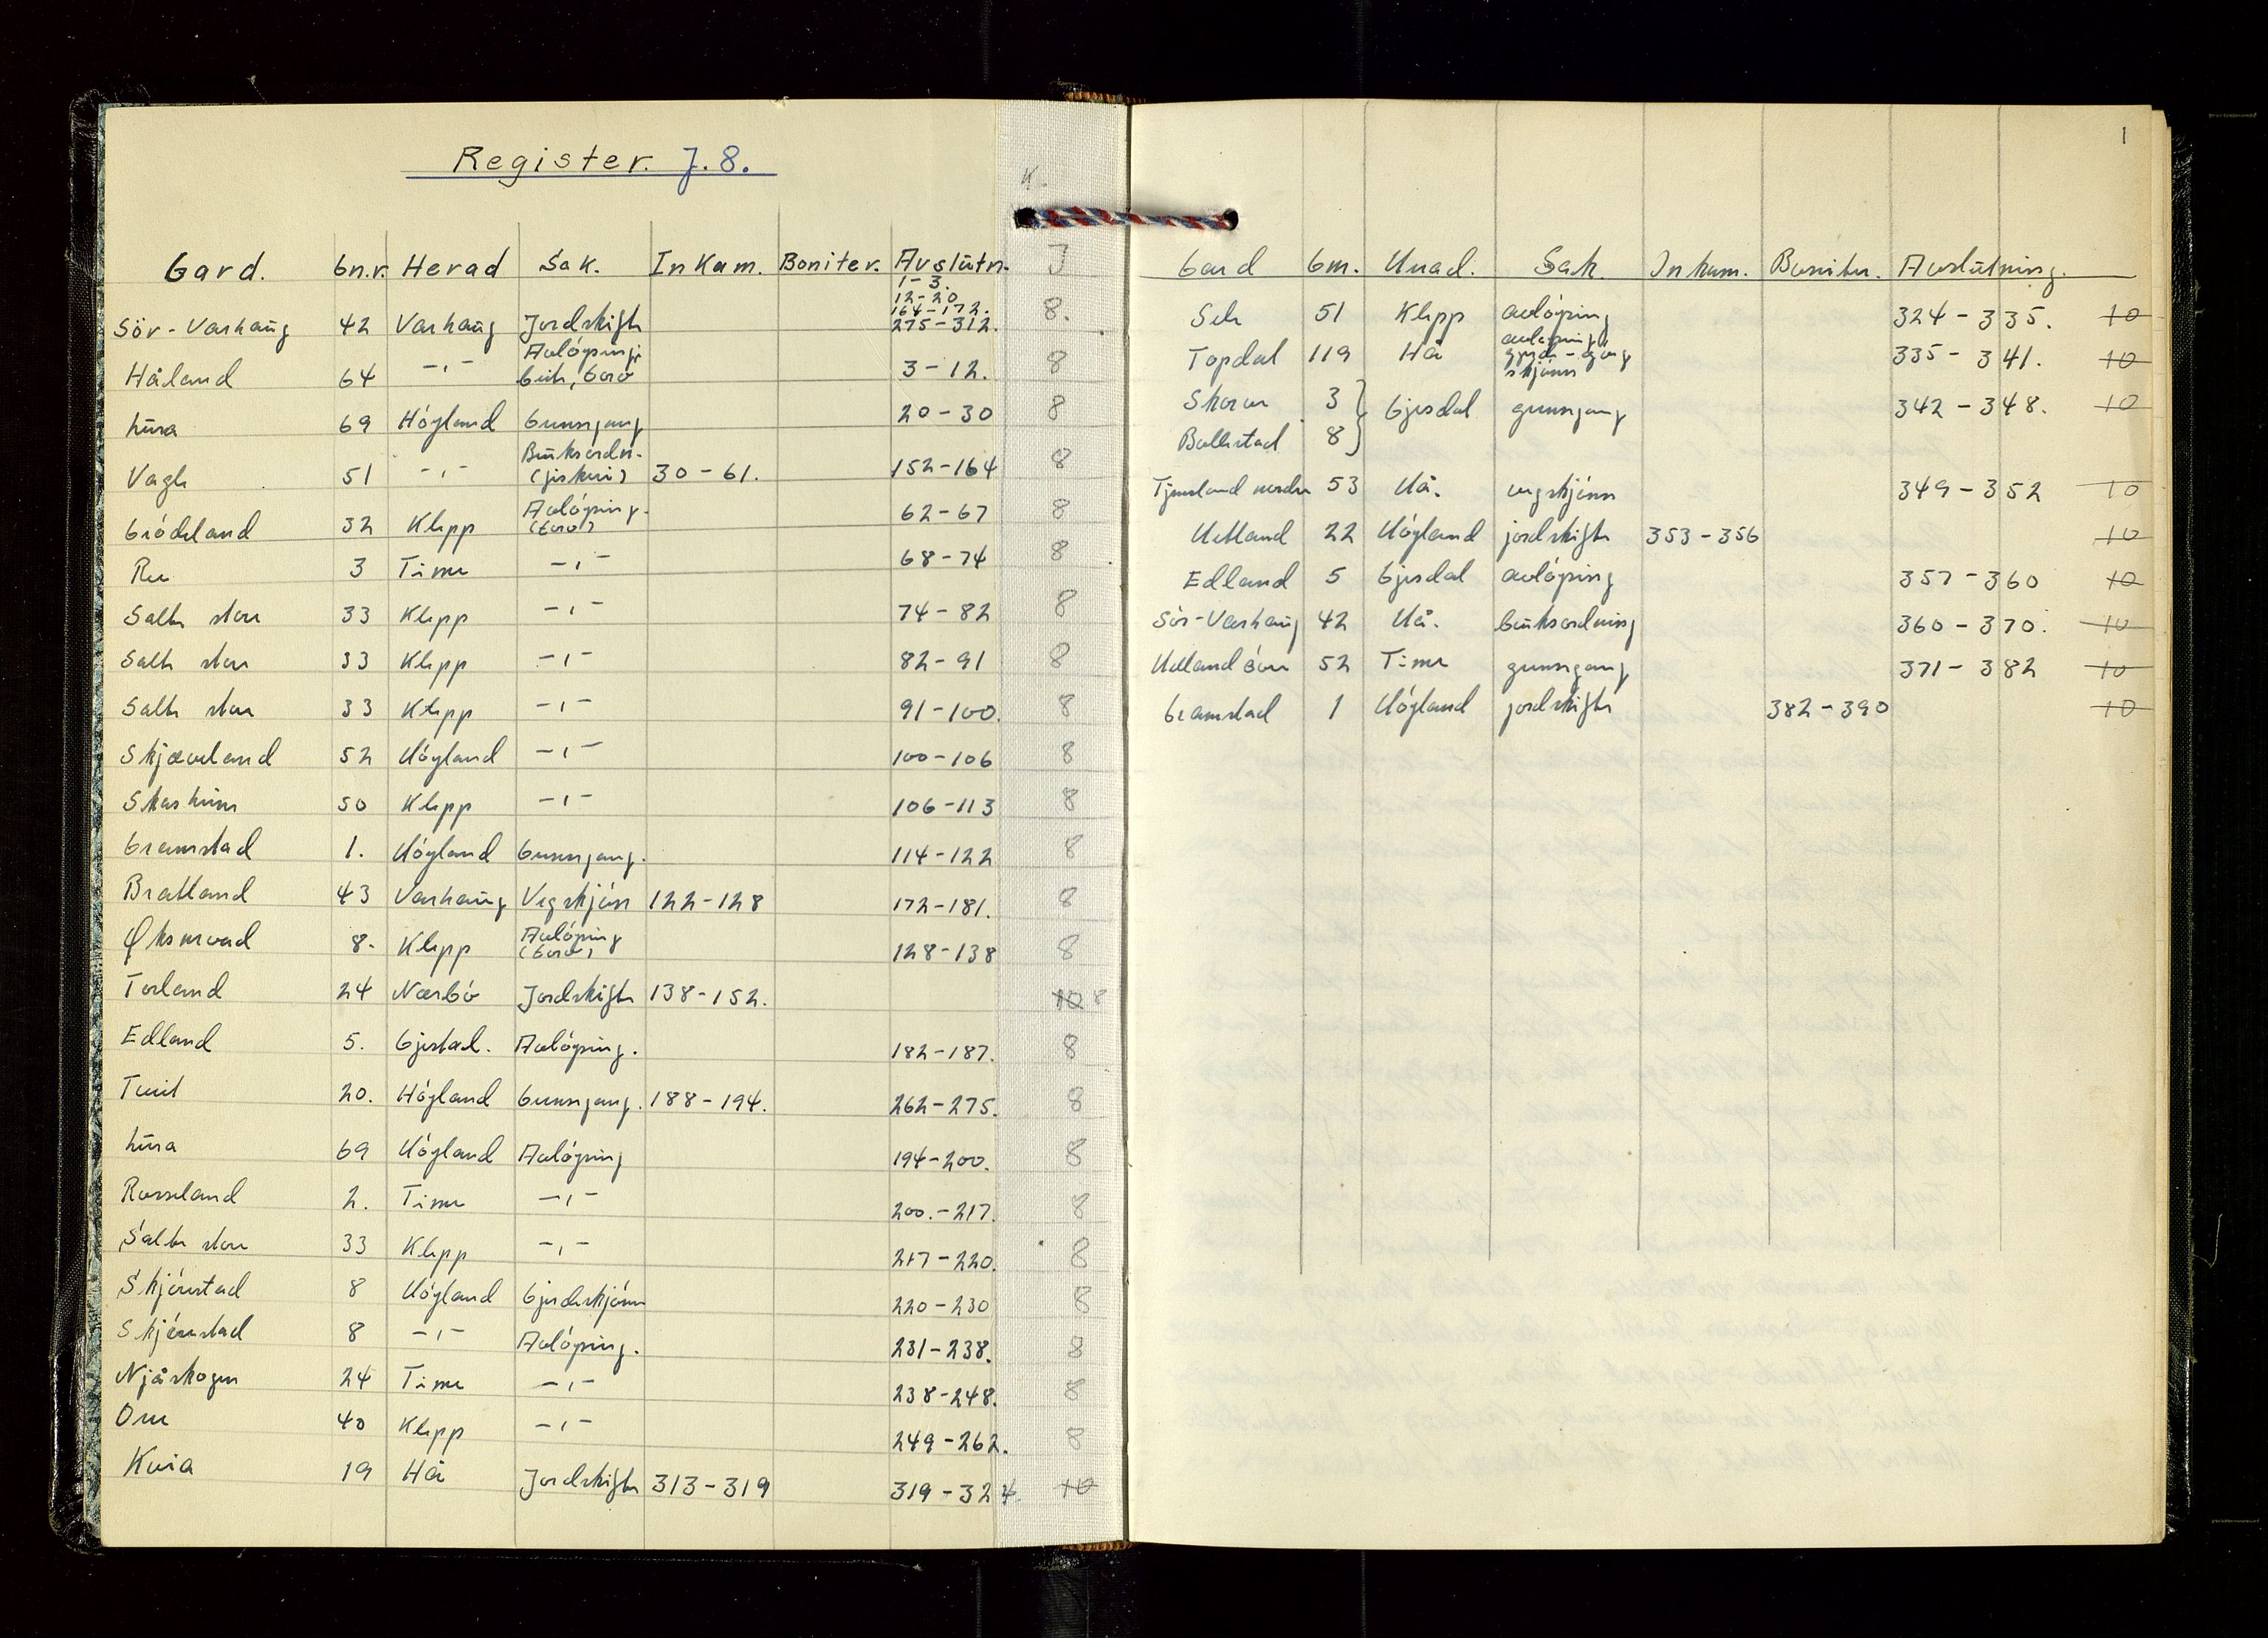 Register. J. 8.
K.
Gard. Gn.r. Herad Sak. Inkam. Boniter. Avslutn. J
1-3.
12-20
164-172.
Sör-Varhaug 42 Varhaug Jordskifte 275-312. 8.
Avlöysing
Håland 64 -,- beite, torv 3-12. 8
Lura 69 Höyland Grensgang 20-30 8
Bruksordn.
Vagle 51 -,- (fiskeri) 30-61. 152-164 8
Avlöysing.
Gródeland 32 Klepp (torv) 62-67 8
Re 3 Time -,- 68-74 8
Salte store 33 Klepp -,- 74-82 8
Salte store 33 Klepp -,- 82-91 8
Salte store 33 Klepp -,- 91-100. 8
Skjæveland 52 Höyland -,- 100-106 8
Skasheim 50 Klepp -,- 106-113 8
Gramstad 1. Höyland Grensgang. 114-122 8
Bratland 43 Varhaug Vegskjön 122-128 172-181. 8
Avlöysing
Øksnevad 8. Klepp (torv) 128-138 8
Torland 24 Nærbö Jordskifte 138-152. 10 8
Edland 5. Gjesdal. Avlöysing. 182-187. 8
Tveit 20. Höyland Grensgang. 188-194. 262-275. 8
Lura 69 Höyland Avlöysing 194-200. 8
Rosseland 2. Time -,- 200.-217. 8
Salte store 33 Klepp -,- 217-220. 8
Skjörestad 8 Höyland Gjerdeskjönn 220-230 8
Skjörestad 8 -,- Avlöysing. 231-238. 8
Njåskogen 24 Time -,- 238-248. 8
Orre 40 Klepp -,- 249-262. 8
Kvia 19 Hå Jordskifte 313-319 319-324. 10
1
Gard Gnr. Herad. Sak. Inkam. Boniter. Avslutning.
Sele 51 Klepp avlöysing 324-335. 10
avløysing
Topdal 119 Hå 335-341. 10
skjönn
Skorve 3 } Gjesdal grensgang 342-348. 10
Bollestad 8 }
Tjemsland nordre 53 Hå. vegskjönn 349-352 10
Hetland 22 Höyland jordskifte 353-356 10
Edland 5 Gjesdal avlöysing 357-360 10
Sör-Varhaug 42 Hå. bruksordning 360-370. 10
Udland 52 Time grensgang 371-382 10
Gramstad 1 Höyland jordskifte 382-390 10